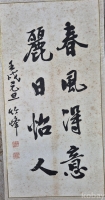 春風得意
麗日怡人
壬戌元旦 竹峰